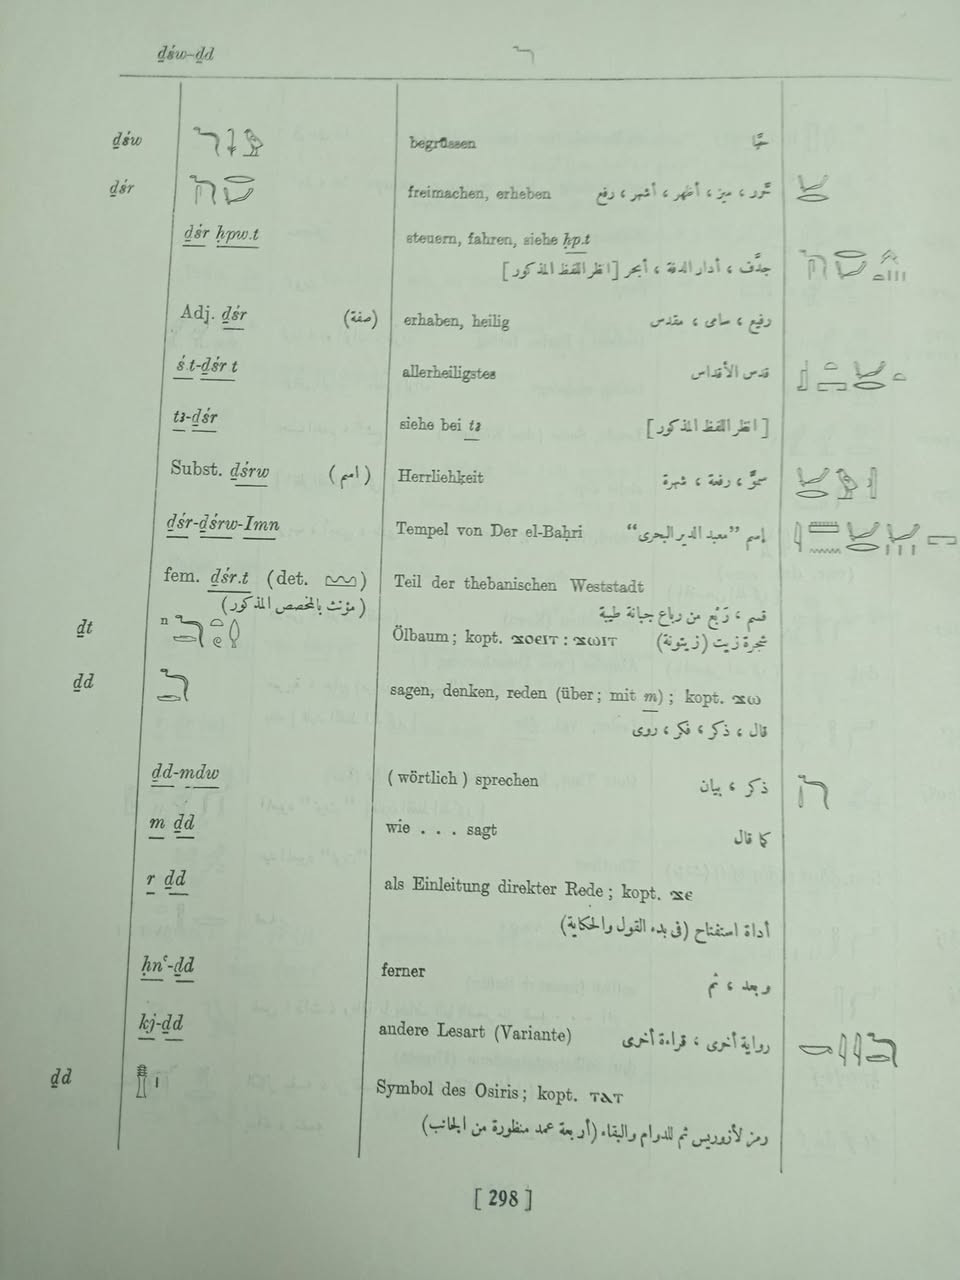 ḏśw–ḏd
ḏśw begrüssen حيَّا
ḏśr freimachen, erheben حرّر ، ميز ، أظهر ، أشهر ، رفع
ḏśr ḥpw.t steuern, fahren, siehe ḥp.t
جدَّف ، أدار الدفة ، أبحر [انظر اللفظ المذكور]
Adj. ḏśr (صفة) erhaben, heilig رفيع ، سامى ، مقدس
ś.t-ḏśr t allerheiligstes قدس الأقداس
tꜣ-ḏśr siehe bei tꜣ [انظر اللفظ المذكور]
Subst. ḏśrw (اسم) Herrliehkeit سموّ ، رفعة ، شهرة
ḏśr-ḏśrw-Imn Tempel von Der el-Baḥri إسم ”معبد الدير البحرى“
fem. ḏśr.t (det. ) Teil der thebanischen Weststadt
(مؤنث بالمخصص المذكور) قسم ، رَبْع من رباع جبانة طيبة
ḏt n Ölbaum; kopt. ϫⲟⲉⲓⲧ : ϫⲱⲓⲧ شجرة زيت (زيتونة)
ḏd sagen, denken, reden (über; mit m); kopt. ϫⲱ
قال ، ذكر ، فكر ، روى
ḏd-mdw (wörtlich) sprechen ذكر ، بيان
m ḏd wie . . . sagt كما قال
r ḏd als Einleitung direkter Rede; kopt. ϫⲉ
أداة استفتاح (فى بدء القول والحكاية)
ḥnꜥ-ḏd ferner وبعد ، ثم
kj-ḏd andere Lesart (Variante) رواية أخرى ، قراءة أخرى
ḏd Symbol des Osiris; kopt. ⲧⲁⲧ
رمز لأزوريس ثم للدوام والبقاء (أربعة عمد منظورة من الجانب)
[ 298 ]